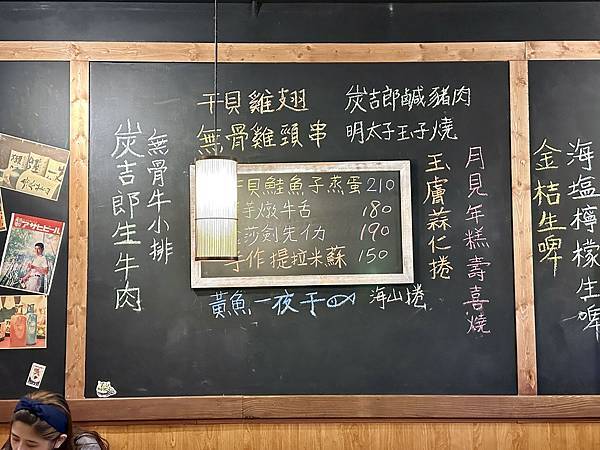 干貝雞翅
炭吉郎鹹豬肉
無骨雞頸串
明太子玉子燒
無骨牛小排
炭吉郎生牛肉
貝鮭魚子蒸蛋210
芋燉牛舌 180
莎劍先 190
手作提拉米蘇 150
玉膚蒜仁捲
月見年糕壽喜燒
黃魚一夜干
海山捲
金桔生啤
海塩檸檬生啤